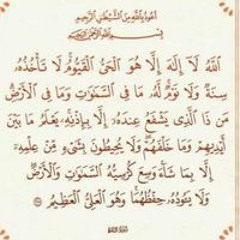 أَعُوذُ بِاللَّهِ مِنَ الشَّيْطَٰنِ الرَّجِيمِ
بِسْمِ اللَّهِ الرَّحْمَٰنِ الرَّحِيمِ
اللَّهُ لَا إِلَٰهَ إِلَّا هُوَ الْحَيُّ الْقَيُّومُ لَا تَأْخُذُهُ
سِنَةٌ وَلَا نَوْمٌ لَّهُ مَا فِي السَّمَٰوَٰتِ وَمَا فِي الْأَرْضِ
مَن ذَا الَّذِي يَشْفَعُ عِندَهُ إِلَّا بِإِذْنِهِ يَعْلَمُ مَا بَيْنَ
أَيْدِيهِمْ وَمَا خَلْفَهُمْ وَلَا يُحِيطُونَ بِشَيْءٍ مِّنْ عِلْمِهِ
إِلَّا بِمَا شَاءَ وَسِعَ كُرْسِيُّهُ السَّمَٰوَٰتِ وَالْأَرْضَ
وَلَا يَئُودُهُ حِفْظُهُمَا وَهُوَ الْعَلِيُّ الْعَظِيمُ